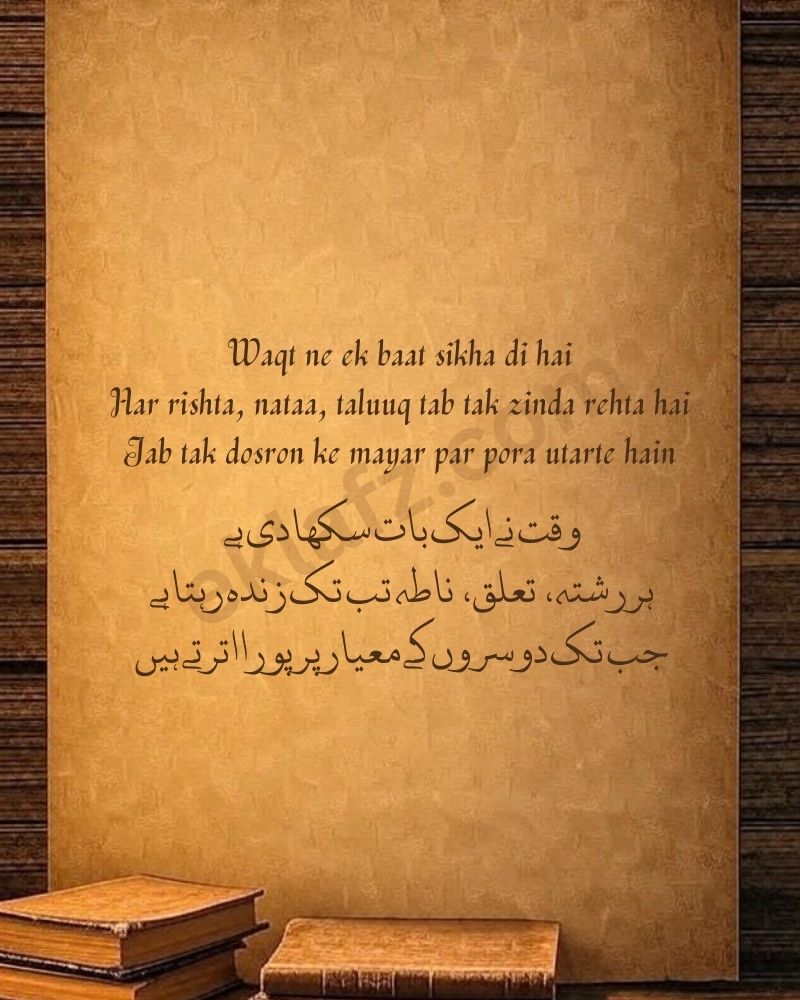 Waqt ne ek baat sikha di hai
Har rishta, nataa, taluuq tab tak zinda rehta hai
Jab tak dosron ke mayar par pora utarte hain
وقت نے ایک بات سکھا دی ہے
ہر رشتہ، تعلق، ناطہ تب تک زندہ رہتا ہے
جب تک دوسروں کے معیار پر پورا اترتے ہیں
eklafz.com